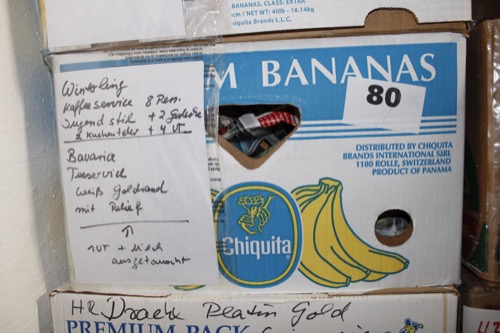 BANANAS, CLASS: EXTRA
-cm / NET WT: 40lb - 18.14kg
Chiquita Brands L.L.C.
M BANANAS
80
Winterling
Kaffeeservice 8 Pers.
Jugendstil + 2 Gedecke
2 Kuchenteller + 4 UT
Bavaria
Teeservice
weiß Goldrand
mit Relief
↑
1 UT + Milch
ausgetauscht
DISTRIBUTED BY CHIQUITA
BRANDS INTERNATIONAL SàRL
1180 ROLLE, SWITZERLAND
PRODUCT OF PANAMA
Chiquita
HR Platin Gold
PREMIUM PACK